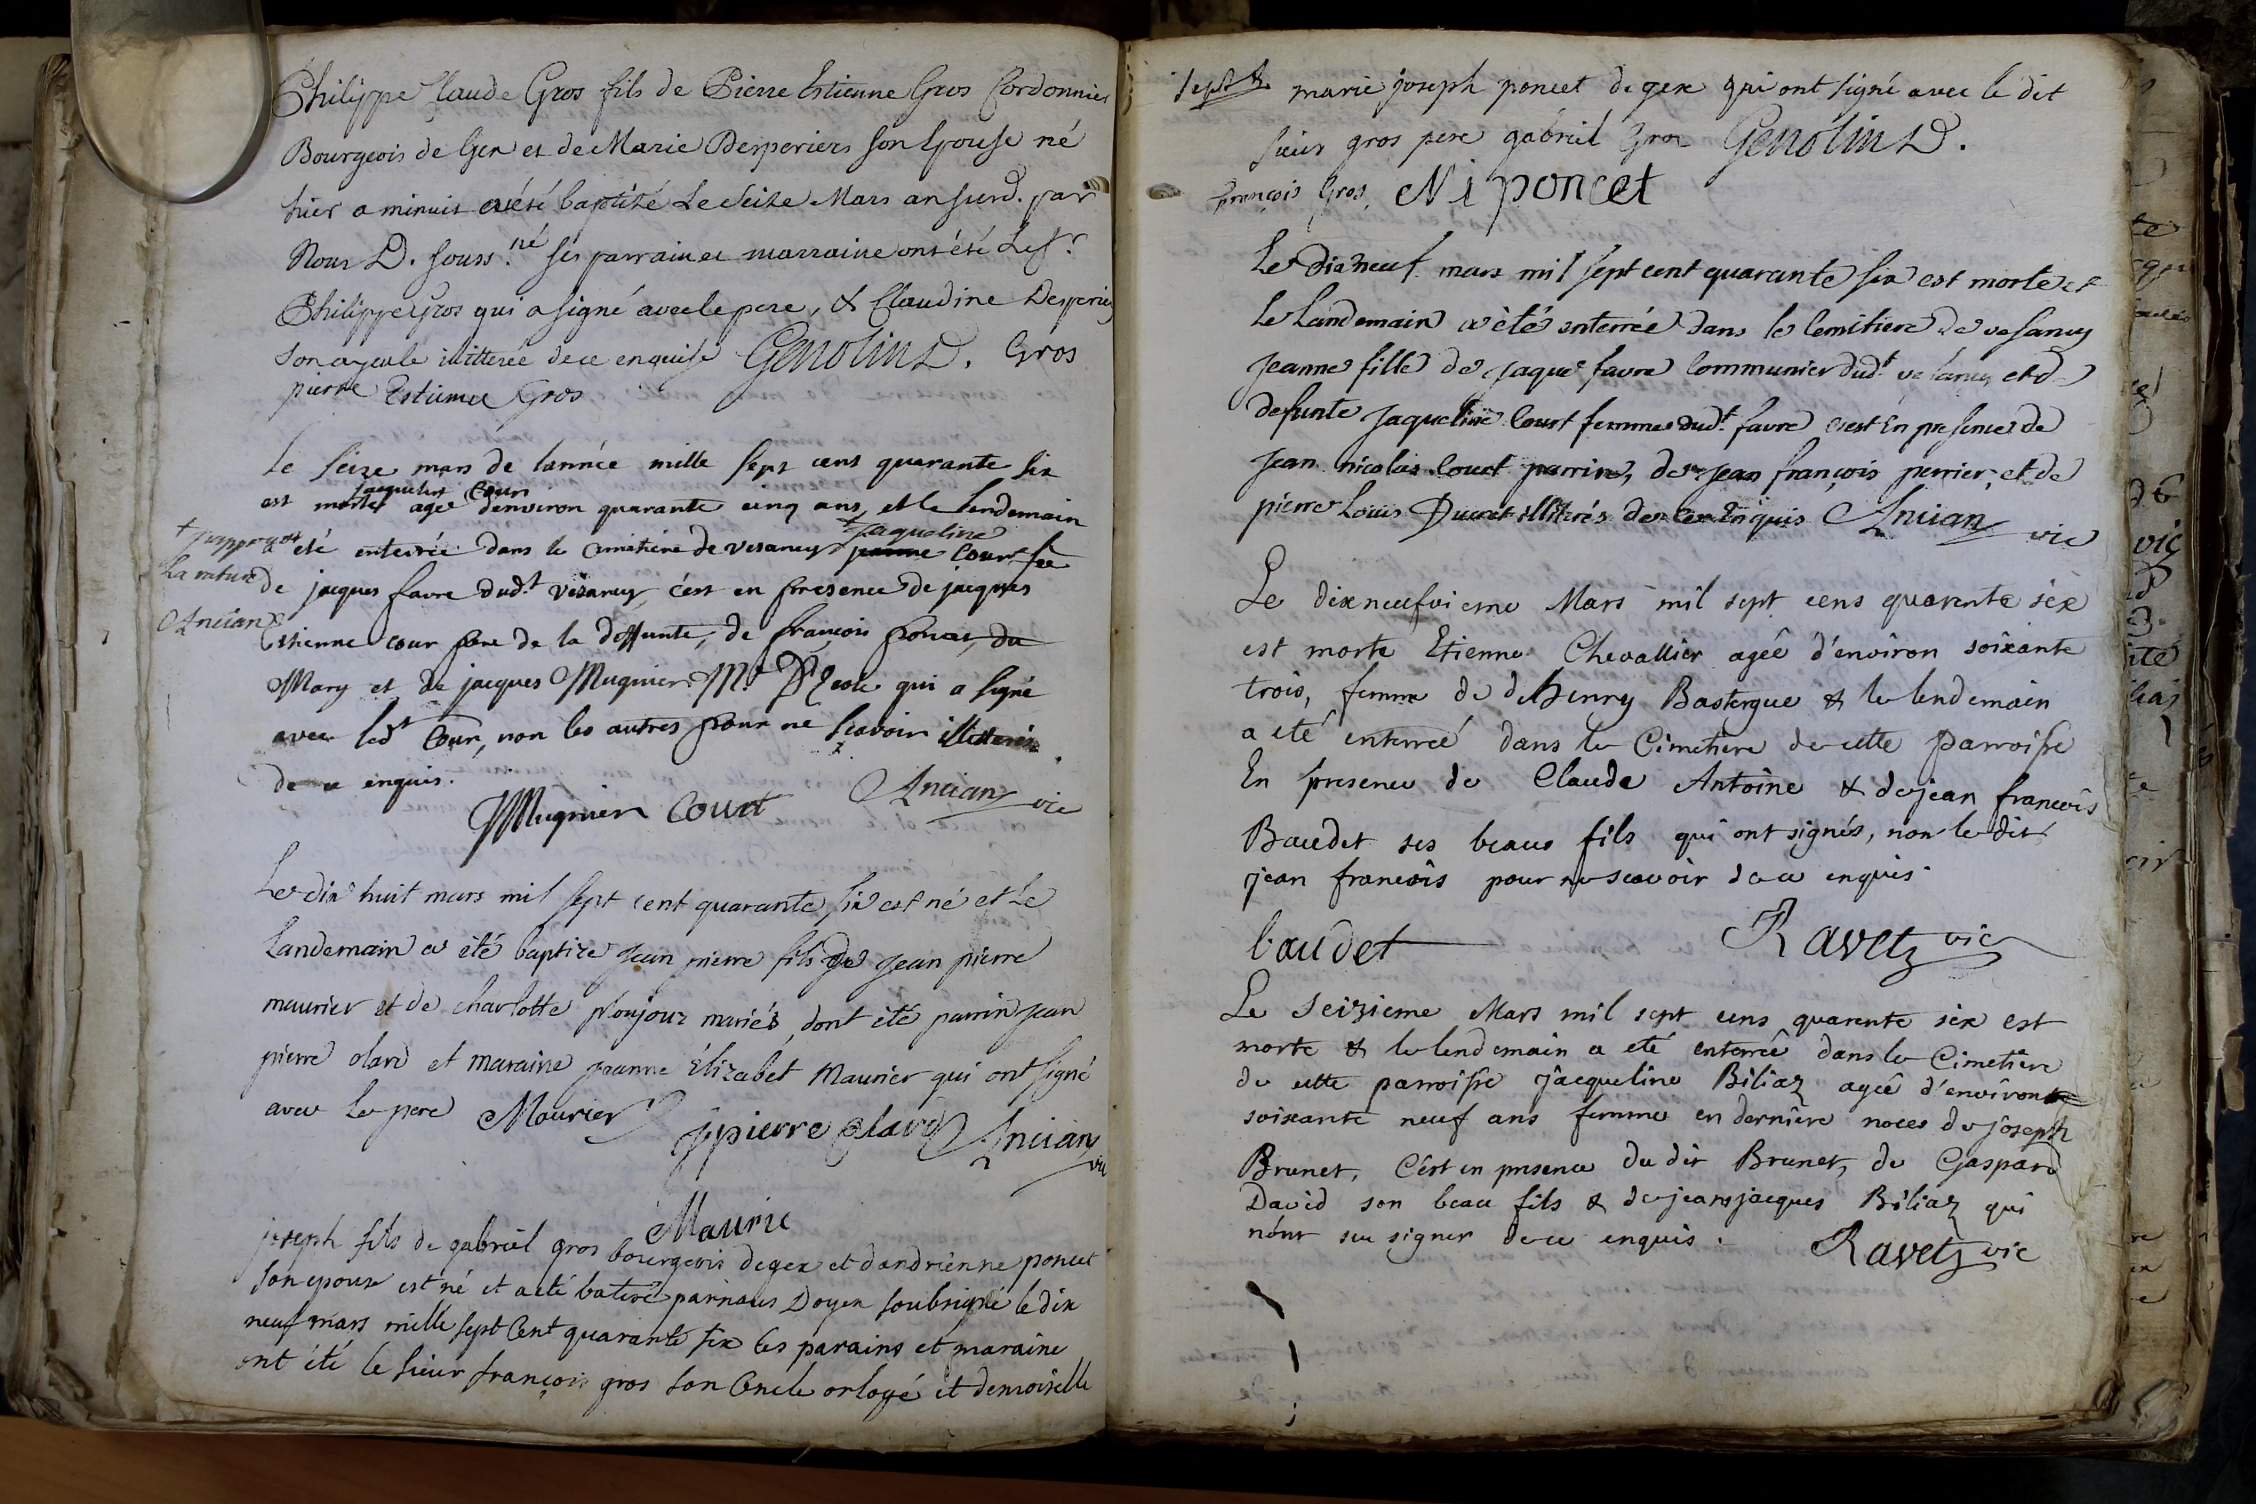 Philippe Claude Gros fils de Pierre Estienne Gros Cordonnier
Bourgeois de Gex et de Marie Desperiers son Epouse né
hier a minuit a été baptizé Le seize Mars an susd. par
Nous D. souss.né ses parrain et marraine ont été Le Sr
Philippe Gros qui a signé avec le pere, & Claudine Desperiers
son ayeule illitterée de ce enquise Genolin D. Gros
pierre Estienne Gros
Le seize mars de lannée mille sept cens quarante six
jacqueline Cour
est morte agée denviron quarante cinq ans, et le lendemain
a eté enterrée dans le cimetiere de vesancy + jeanne Cour fe
+ jaqueline
+ japprouve
La rature
Ancian
de jacques favre dud.t vesancy, c'est en presence de jacques
Estienne cour pere de la deffunte, de françois poncet, du
Mary et de jacques Mugnier M.e D'Ecole qui a signé
avec led.t Cour, non les autres pour ne scavoir illitterés
de ce enquis.
JMugnier Court Ancian vic
Le dix huit mars mil sept cent quarante six est né et Le
Landemain a été baptize jean pierre fils de jean pierre
maurier et de charlotte ploujoux mariés, dont été parrin jean
pierre olard et maraine jeanne Élizabet Maurier qui ont signé
avec Le pere Mourier Jpierre olard Ancian vic
Maurie
joseph fils de gabriel gros bourgeois de gex et dandrienne poncet
son epouse est né et a eté batisé par nous Doyen soubsigné le dix
neuf mars mille sept Cent quarante six les parains et maraine
ont été le sieur françois gros son Oncle orlogé et demoiselle
marie joseph poncet de gex qui ont signé avec le dit
sieur gros pere gabriel Gros Genolin D.
françois Gros, M j poncet
Le Dix neuf mars mil sept cent quarante six est morte et
Le Landemain a été enterrée dans le Cemitiere de vesancy
Jeanne fille de jaque favre Communier dud.t vesancy et d
defunte jaqueline Court femme dud.t favre c'est En presence de
jean nicolas Court parrin, de sr jean françois perrier, et de
pierre Louis Ducret illitérés de ce Enquis Ancian vic
Le dixneufvieme Mars mil sept cens quarente six
est morte Etienne Chevallier agée d'environ soixante
trois, femme de d henry Bastergue & le lendemain
a eté enterreé dans le Cimetiere de cette parroisse
En presence de Claude Antoine & de jean francois
Baudet ses beaux fils qui ont signés, non le dit
jean francois pour ne scavoir de ce enquis.
baudet Ravetz vic
Le seizieme Mars mil sept cens quarente six est
morte & le lendemain a eté enterrée dans le Cimetiere
de cette parroisse jacqueline Biliaz agée d'environ
soixante neuf ans femme en derniere noces de joseph
Brunet, C'est en presence du dit Brunet, de Gaspard
David son beau fils & de jean jacques Biliaz qui
n'ont sceu signer de ce enquis. Ravetz vic